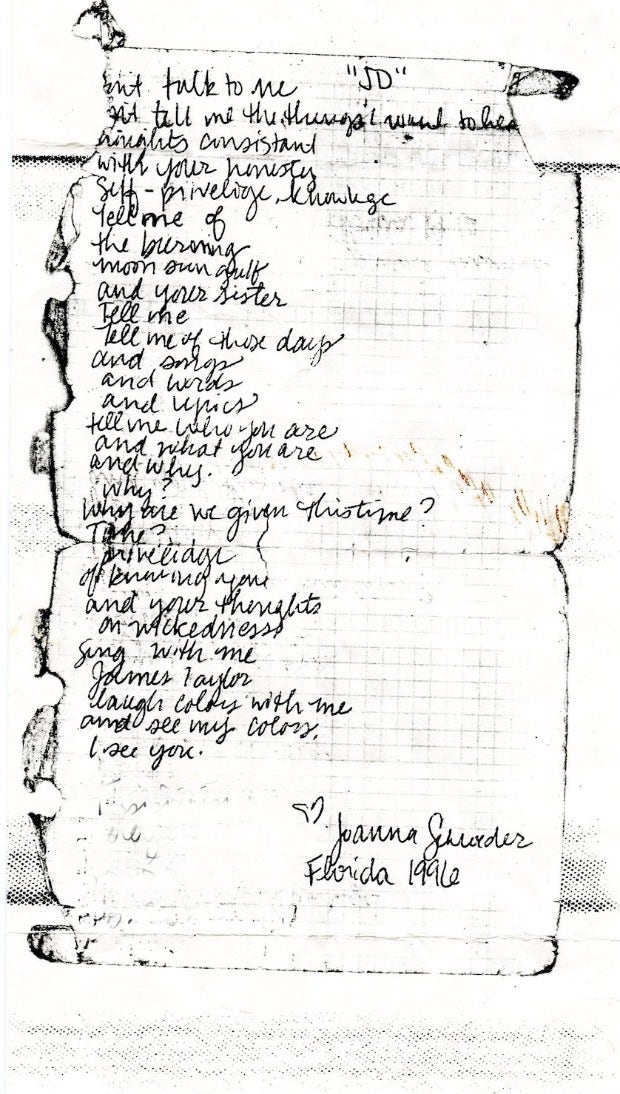 talk to me "JD"
tell me the things I want to hea
oughts consistant
with your honesty
Self-priveloge, knowlege
Tell me of
the burning
moon sun gulf
and your sister
Tell me
Tell me of those days
and songs
and words
and lyrics
tell me who you are
and what you are
and why.
why?
Why are we given this time?
Time?
priveledge
of knowing you
and your thoughts
on wickedness
Sing with me
James Taylor
laugh colors with me
and see my colors,
I see you.
♡ Joanna Schroeder
Florida 1996